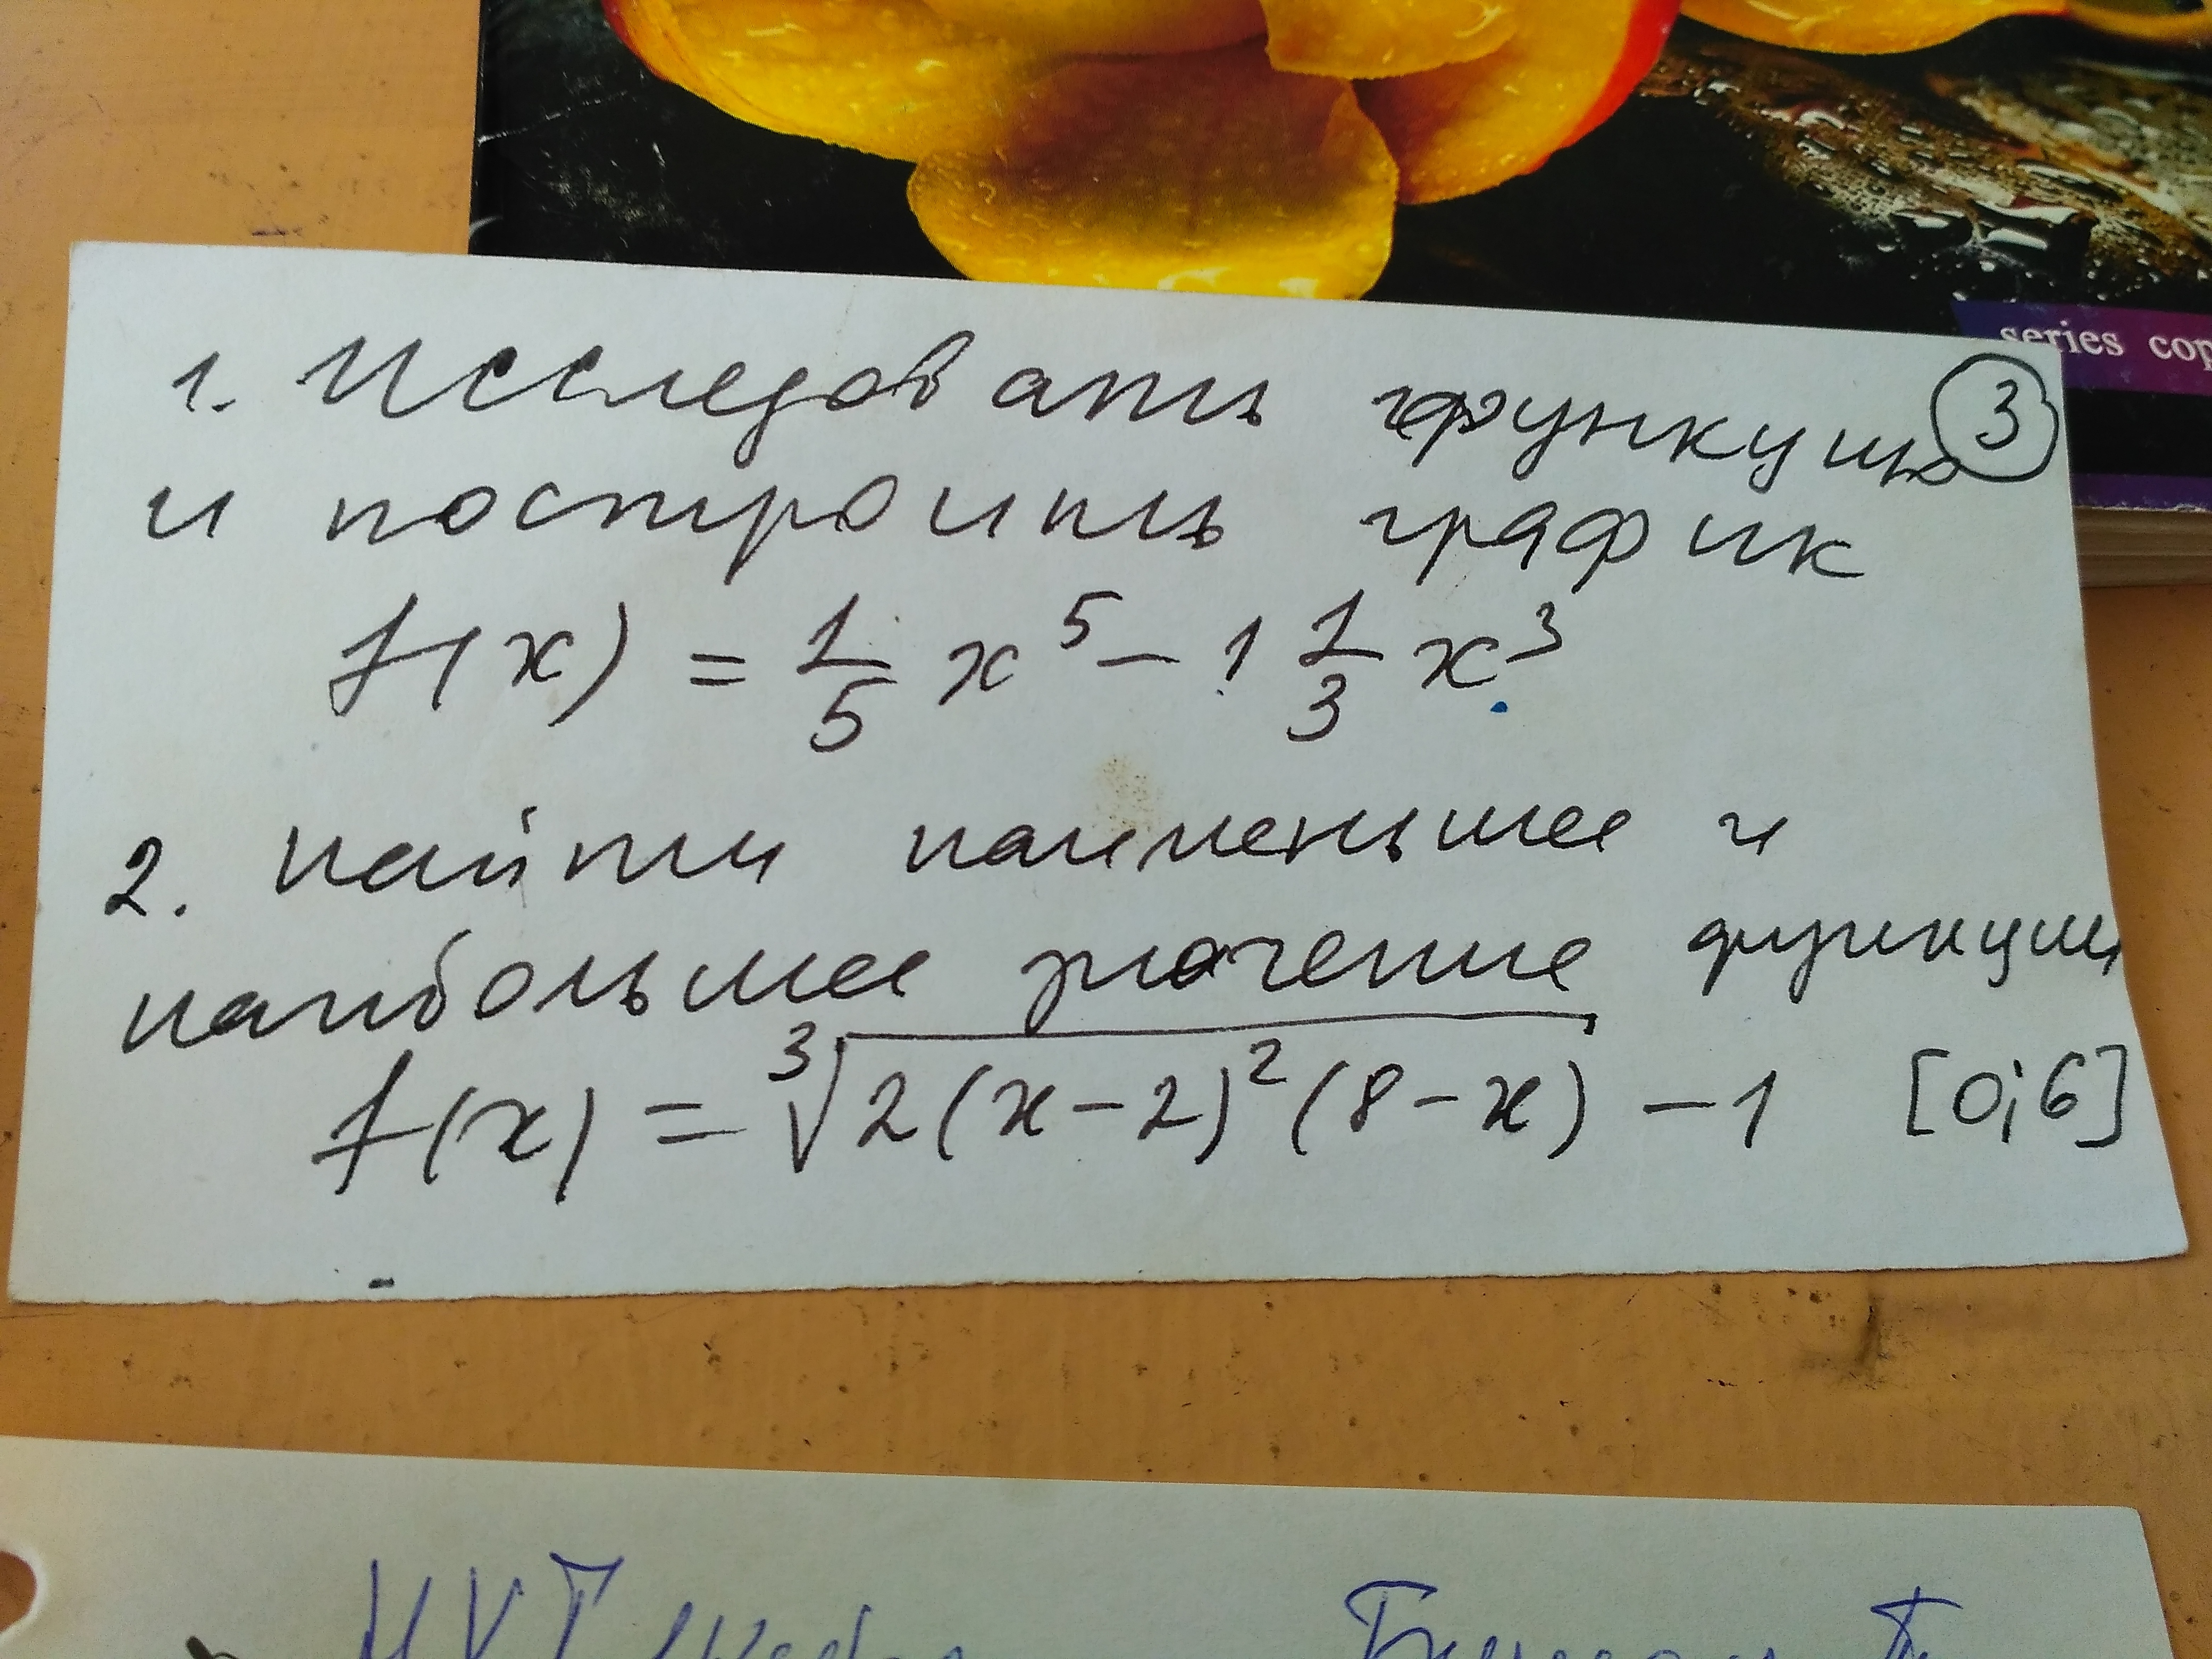 series cop
3
1. Исследовать функцию
и построить график
f(x) = 1/5 x^5 - 1 1/3 x^3.
2. Найти наименьшее и
наибольшее значение функции
f(x) = ∛(2(x-2)^2(8-x)) - 1 [0;6]